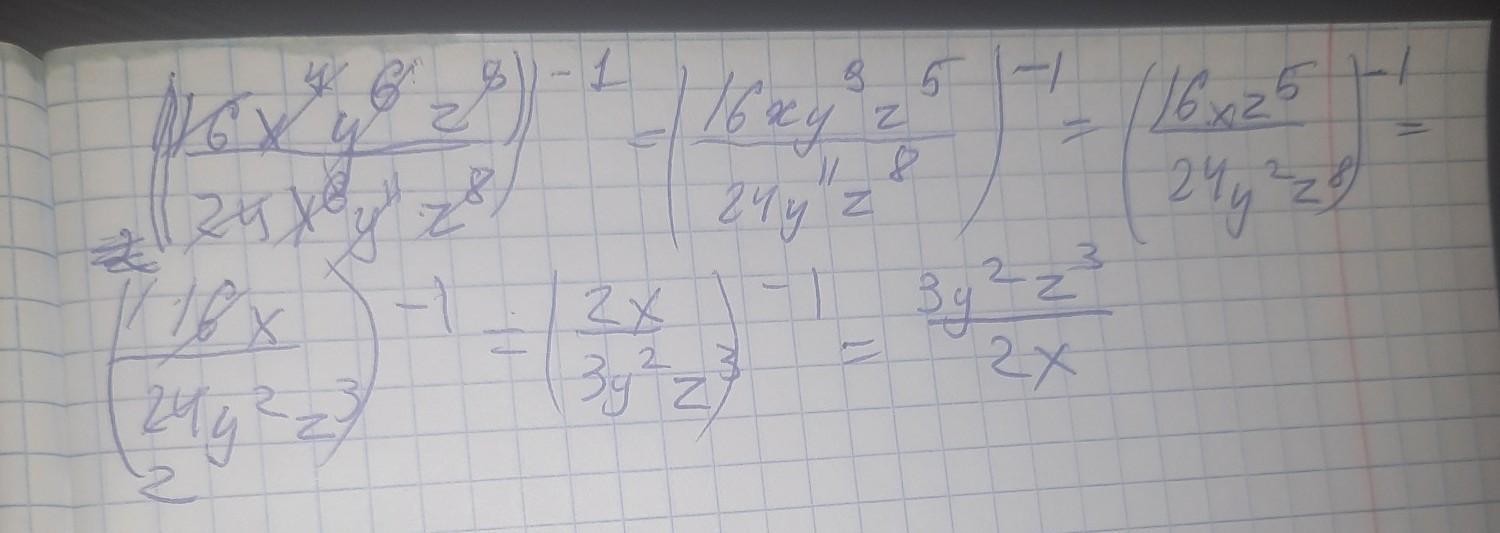 ((16x⁴y⁶z⁸)/(24x⁶y¹¹z⁸))⁻¹ = (16xy⁹z⁵/24y¹¹z⁸)⁻¹ = (16xz⁵/24y²z⁸)⁻¹ =
(16x/24y²z³)⁻¹ = (2x/3y²z³)⁻¹ = 3y²z³/2x
2